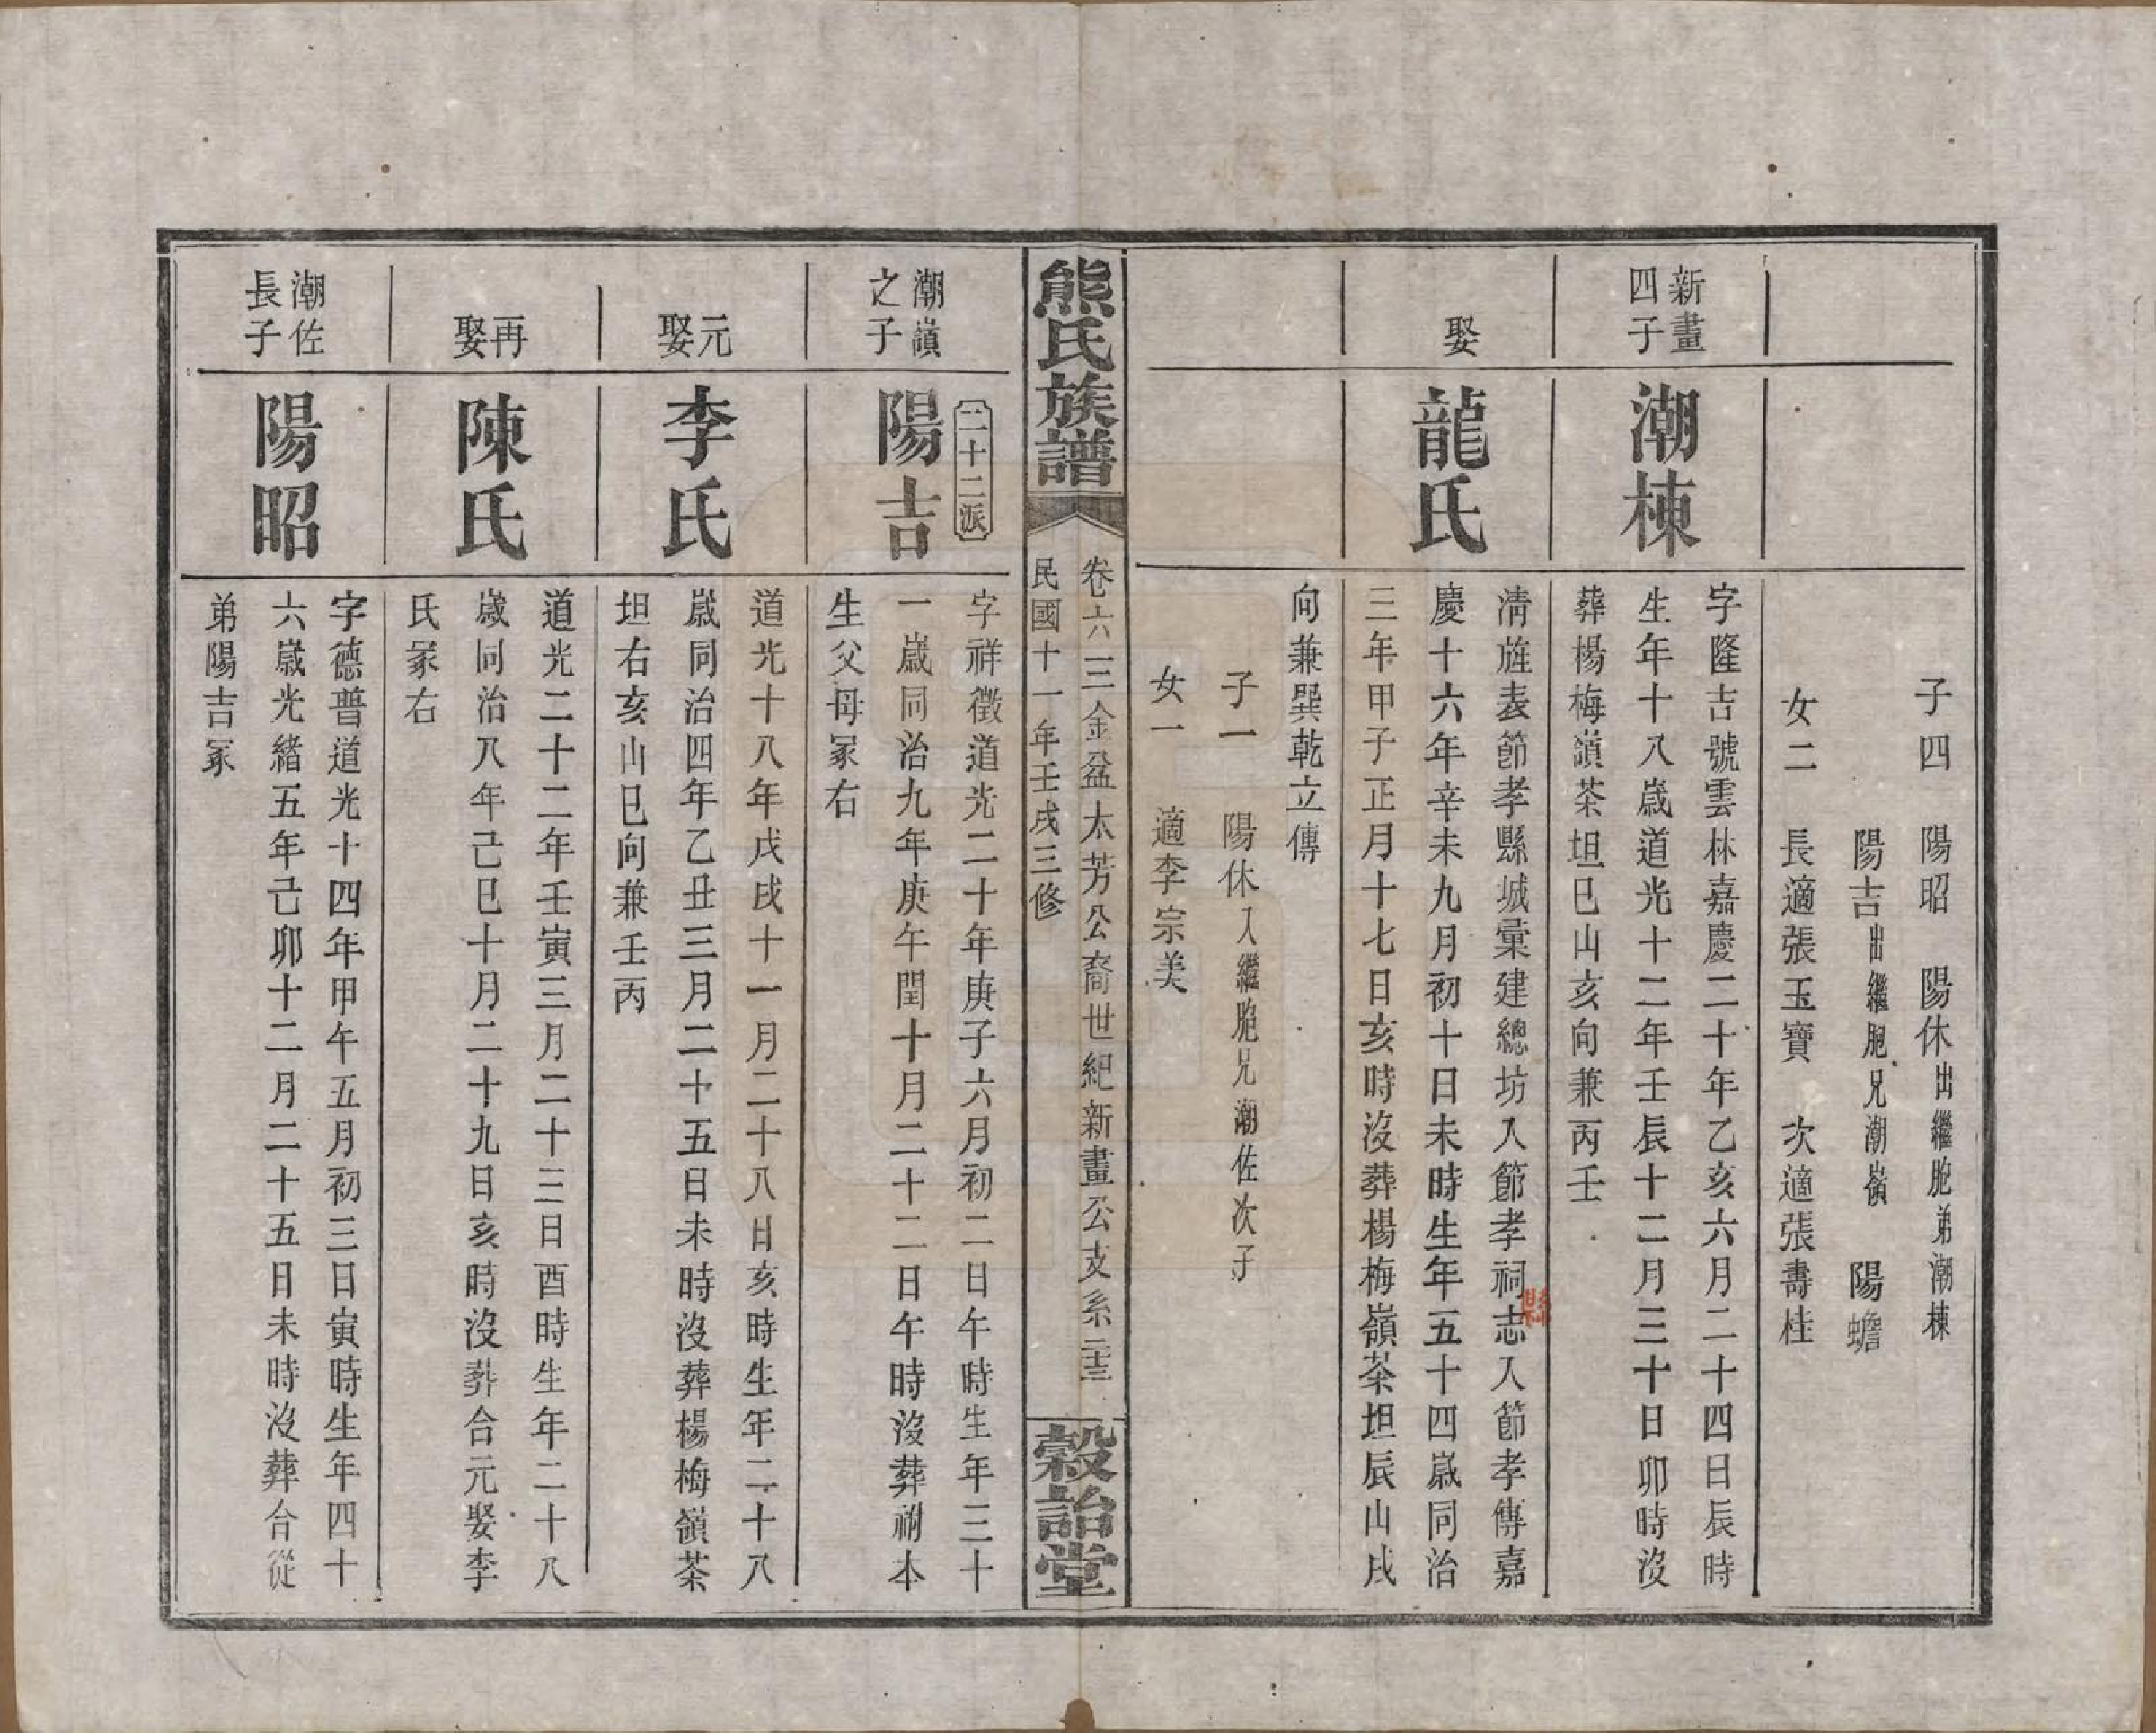 子四　陽昭　陽休出繼胞弟潮棟
陽吉出繼胞兄潮嶺　陽蟾
女二　長適張玉寶　次適張壽桂
新畫
四子
潮棟
字隆吉號雲林嘉慶二十年乙亥六月二十四日辰時
生年十八歲道光十二年壬辰十二月三十日卯時沒
葬楊梅嶺茶坦巳山亥向兼丙壬
娶
龍氏
清旌表節孝縣城彙建總坊入節孝祠志入節孝傳嘉
縣
慶十六年辛未九月初十日未時生年五十四歲同治
三年甲子正月十七日亥時沒葬楊梅嶺茶坦辰山戌
向兼巽乾立傳
子一　陽休入繼胞兄潮佐次子
女一　適李宗美
熊氏族譜
卷六　三金盆太芳公裔世紀新畫公支系　二十三
民國十一年壬戌三修
穀詒堂
二十二派
潮嶺
之子
陽吉
字祥徵道光二十年庚子六月初二日午時生年三十
一歲同治九年庚午閏十月二十二日午時沒葬祔本
生父母冢右
元
娶
李氏
道光十八年戊戌十一月二十八日亥時生年二十八
歲同治四年乙丑三月二十五日未時沒葬楊梅嶺茶
坦右亥山巳向兼壬丙
再
娶
陳氏
道光二十二年壬寅三月二十三日酉時生年二十八
歲同治八年己巳十月二十九日亥時沒葬合元娶李
氏冢右
潮佐
長子
陽昭
字德普道光十四年甲午五月初三日寅時生年四十
六歲光緒五年己卯十二月二十五日未時沒葬合從
弟陽吉冢